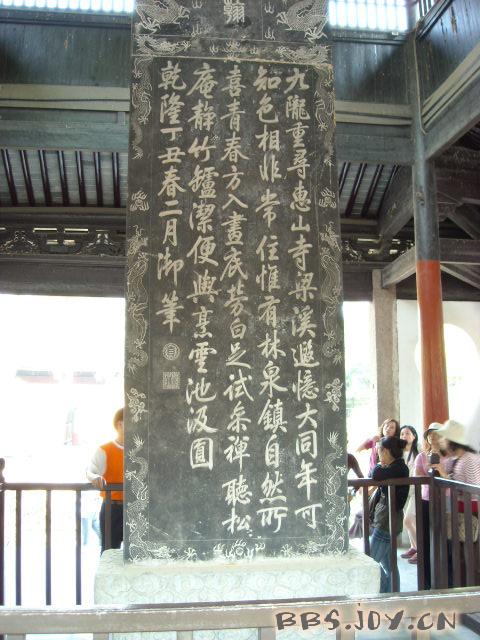 彌
九隴重尋惠山寺梁溪遐憶大同年可
知色相非常住惟有林泉鎮自然所
喜青春方入畫底勞白足試參禪聽松
庵靜竹罏潔便與烹雲池汲圓
乾隆丁丑春二月御筆
BBS.JOY.CN